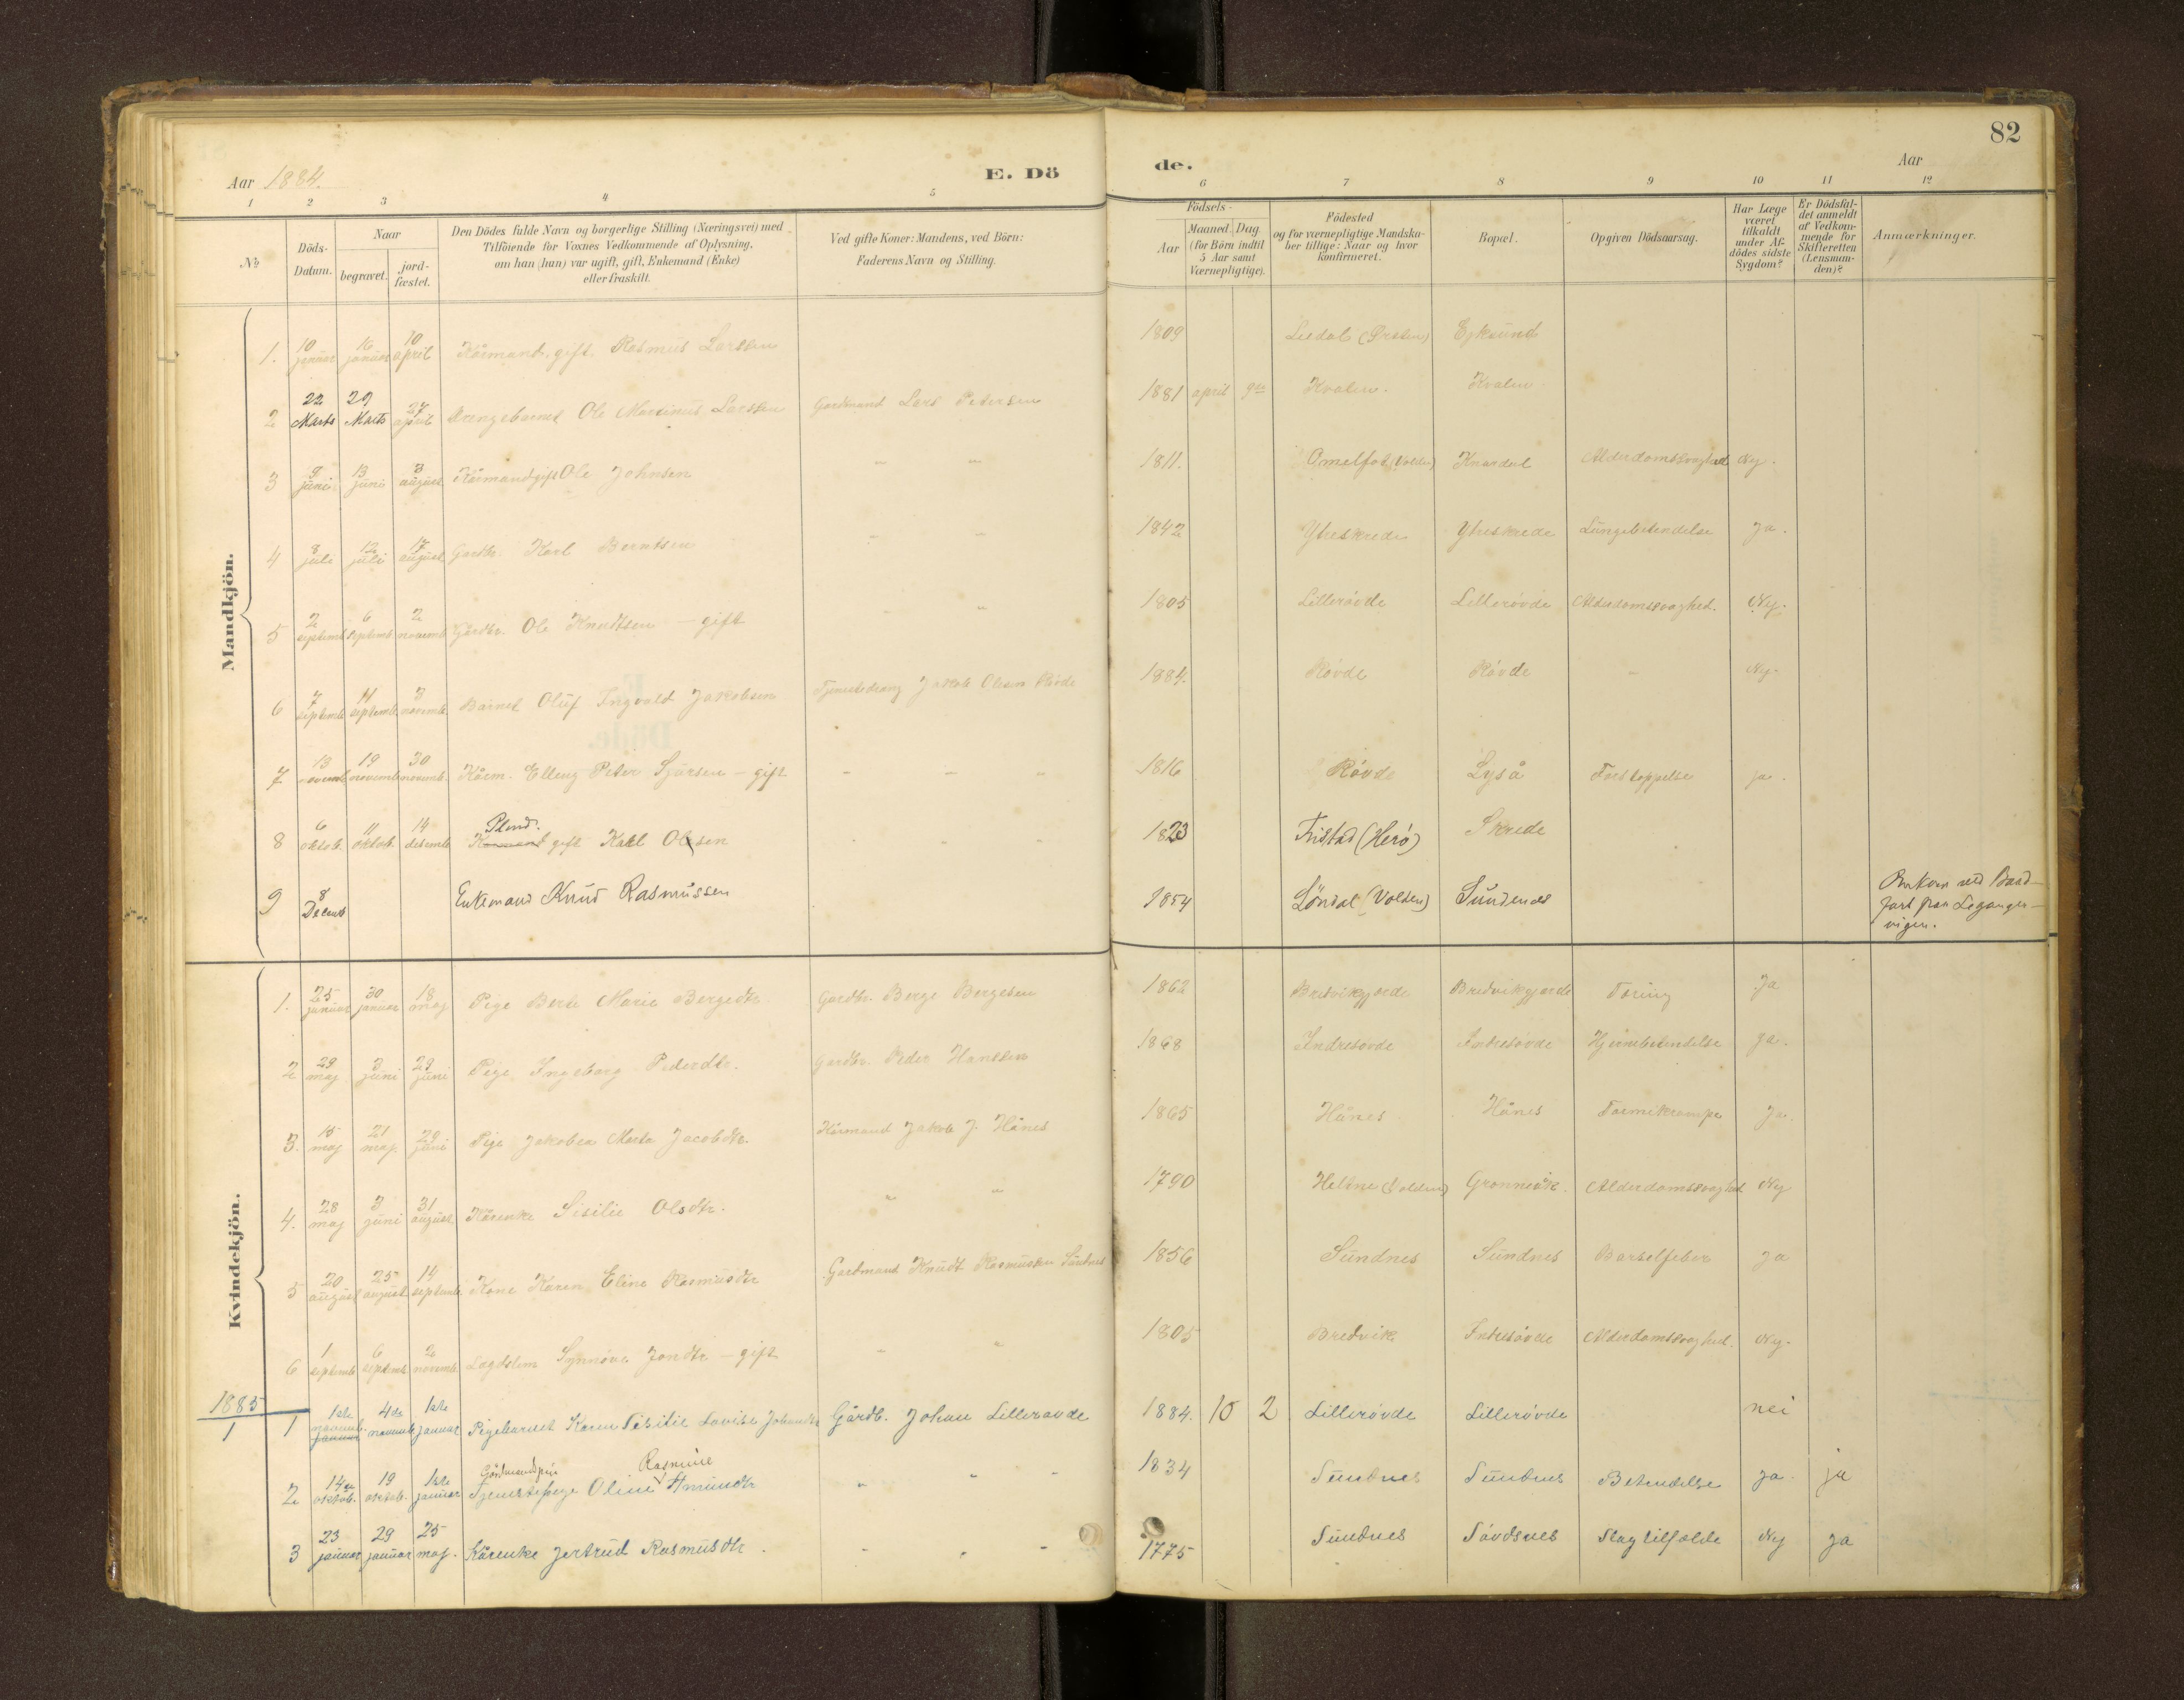 82
Aar 1884.
E. Döde.
Aar
1 2 3 4 5 6 7 8 9 10 11 12
№
Döds-Datum.
Naar
begravet.
jord-fæstet.
Den Dödes fulde Navn og borgerlige Stilling (Næringsvei) med
Tilföiende for Voxnes Vedkommende af Oplysning,
om han (hun) var ugift, gift, Enkemand (Enke)
eller fraskilt.
Ved gifte Koner: Mandens, ved Börn:
Faderens Navn og Stilling.
Födsels-
Aar
Maaned. Dag
(for Börn indtil
5 Aar samt
Værnepligtige).
Födested
og for værnepligtige Mandska-
ber tillige: Naar og hvor
konfirmeret.
Bopæl.
Opgiven Dödsaarsag.
Har Læge
været
tilkaldt
under Af-
dödes sidste
Sygdom?
Er Dödsfal-
det anmeldt
af Vedkom-
mende for
Skifteretten
(Lensman-
den)?
Anmærkninger.
Mandkjön.
1. 10 januar 16 januar 10 april Kårmand, gift. Rasmus Larssen 1809 Liedal (Ørsten) Eyksund
2 22 Marts 29 Marts 27 april Drengebarnet Ole Martinus Larssen Gardmand Lars Petersen 1881 april 9de Kvalen. Kvalen.
3 9 juni 13 juni 3 august Kårmand gift Ole Johnsen " " 1811. Omelfot (Volden) Knardal Alderdomssvaghed Nej.
4 8 juli 12 juli 17 august Gardbr. Karl Berntsen " " 1842 Ytreskrede Ytreskrede Lungebetendelse Ja.
5 2 septemb 6 septemb 2 novemb Gårdbr. Ole Knudtsen - gift " " 1805 Lillerövde Lillerövde Alderdomssvaghed. Nej.
6 7 septemb 11 septemb 3 novemb. Barnet Oluf Ingvald Jakobsen Tjenestedreng Jakob Olesen Rövde 1884. Rövde Rövde " Nej.
7 13 novemb 19 novemb 30 novemb. Kårm. Elling Peter Sjursen - gift " " " 1816 Rövde Lyså Forstoppelse ja.
8 6 oktob. 11 oktob. 14 desemb Plend. Kårmand gift Karl Olsen " " " 1823 Fristad (Herö) Skrede
9 8 Decemb Enkemand Knud Rasmussen 1854 Löndal (Volden) Sundenes
Omkom ved Baad-
fart fra Leganger-
vigen.
Kvindekjön.
1. 25 januar 30 januar 18 maj Pige Berte Marie Bergedtr. Gardbr. Berge Bergesen 1862 Bredvikgjerde Bredvikgjerde Tæring Ja
2 29 maj 3 juni 29 juni Pige Ingeborg Pederdtr. Gardbr. Peder Hanssen 1868 Indresövde Indresövde Hjernebetendelse ja.
3. 15 maj 21 maj. 29 juni Pige Jakobea Marta Jacobdtr. Kårmand Jakob J. Hånes 1865 Hånes Hånes Tarmekrampe Ja.
4. 28 maj 3 juni 31 august Kårenke Sisilie Olsdtr. " " 1790 Helsne (Volden) Grönnevik. Alderdomssvaghed Nej
5 20 august 25 august 14 septemb. Kone Karen Eline Rasmusdtr Gardmand Knudt Rasmussen Sundnes 1856 Sundnes Sundnes Barselfeber ja
6 1 septemb 6 septemb 2 novemb. Lægdslem Synnöve Jondtr - gift " " 1805 Bredvik Indresövde Alderdomssvaghed. Nej.
1885
1
1 1ste novemb. januar 4de novemb. 1ste januar Pigebarnet Karen Sisilie Lovise Johandtr Gårdb. Johan Lilleravde 1884. 10 2 Lillerövde Lillerövde nei
2 14de oktob. 19 oktob. 1ste januar Gårdmandspie Tjenestepige Oline Rasmine Amundtr " " " 1834 Sundnes Sundnes Betendelse ja. ja
3 23 januar 29 januar 25 maj. Kårenke Jertrud Rasmusdtr. " " " 1775 Sundnes Sövdsnes Slagtilfælde Nej ja